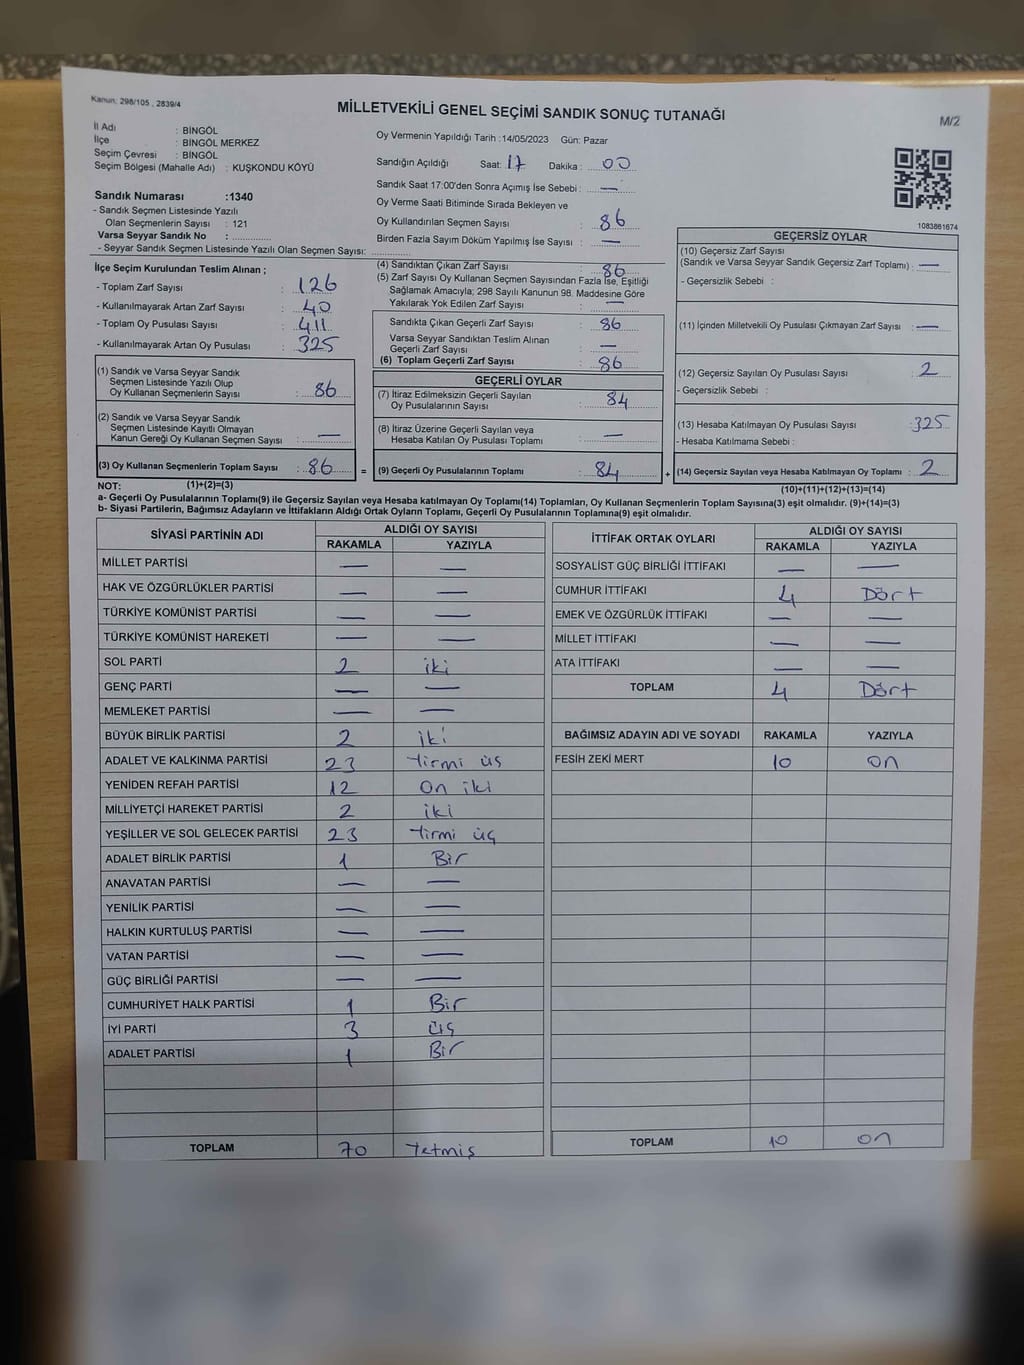 Kanun; 298/105 , 2839/4
MİLLETVEKİLİ GENEL SEÇİMİ SANDIK SONUÇ TUTANAĞI
M/2
İl Adı : BİNGÖL
İlçe : BİNGÖL MERKEZ
Seçim Çevresi : BİNGÖL
Seçim Bölgesi (Mahalle Adı) : KUŞKONDU KÖYÜ
Sandık Numarası :1340
- Sandık Seçmen Listesinde Yazılı
Olan Seçmenlerin Sayısı : 121
Varsa Seyyar Sandık No : ..............
- Seyyar Sandık Seçmen Listesinde Yazılı Olan Seçmen Sayısı: ..............
Oy Vermenin Yapıldığı Tarih :14/05/2023 Gün: Pazar
Sandığın Açıldığı Saat: 17 Dakika : 00
Sandık Saat 17:00'den Sonra Açımış İse Sebebi : —
Oy Verme Saati Bitiminde Sırada Bekleyen ve
Oy Kullandırılan Seçmen Sayısı : 86
Birden Fazla Sayım Döküm Yapılmış İse Sayısı : —
1083861674
İlçe Seçim Kurulundan Teslim Alınan ;
- Toplam Zarf Sayısı : 126
- Kullanılmayarak Artan Zarf Sayısı : 40
- Toplam Oy Pusulası Sayısı : 411
- Kullanılmayarak Artan Oy Pusulası : 325
(1) Sandık ve Varsa Seyyar Sandık
Seçmen Listesinde Yazılı Olup
Oy Kullanan Seçmenlerin Sayısı : 86
(2) Sandık ve Varsa Seyyar Sandık
Seçmen Listesinde Kayıtlı Olmayan
Kanun Gereği Oy Kullanan Seçmen Sayısı : —
(3) Oy Kullanan Seçmenlerin Toplam Sayısı : 86
(4) Sandıktan Çıkan Zarf Sayısı : 86
(5) Zarf Sayısı Oy Kullanan Seçmen Sayısından Fazla İse, Eşitliği
Sağlamak Amacıyla; 298 Sayılı Kanunun 98. Maddesine Göre
Yakılarak Yok Edilen Zarf Sayısı : —
Sandıkta Çıkan Geçerli Zarf Sayısı : 86
Varsa Seyyar Sandıktan Teslim Alınan
Geçerli Zarf Sayısı : —
(6) Toplam Geçerli Zarf Sayısı : 86
GEÇERLİ OYLAR
(7) İtiraz Edilmeksizin Geçerli Sayılan
Oy Pusulalarının Sayısı : 84
(8) İtiraz Üzerine Geçerli Sayılan veya
Hesaba Katılan Oy Pusulası Toplamı : —
= (9) Geçerli Oy Pusulalarının Toplamı : 84 +
GEÇERSİZ OYLAR
(10) Geçersiz Zarf Sayısı
(Sandık ve Varsa Seyyar Sandık Geçersiz Zarf Toplamı) : —
- Geçersizlik Sebebi :
(11) İçinden Milletvekili Oy Pusulası Çıkmayan Zarf Sayısı : —
(12) Geçersiz Sayılan Oy Pusulası Sayısı : 2
- Geçersizlik Sebebi :
(13) Hesaba Katılmayan Oy Pusulası Sayısı : 325
- Hesaba Katılmama Sebebi :
(14) Geçersiz Sayılan veya Hesaba Katılmayan Oy Toplamı : 2
NOT: (1)+(2)=(3)
(10)+(11)+(12)+(13)=(14)
a- Geçerli Oy Pusulalarının Toplamı(9) ile Geçersiz Sayılan veya Hesaba katılmayan Oy Toplamı(14) Toplamları, Oy Kullanan Seçmenlerin Toplam Sayısına(3) eşit olmalıdır. (9)+(14)=(3)
b- Siyasi Partilerin, Bağımsız Adayların ve İttifakların Aldığı Ortak Oyların Toplamı, Geçerli Oy Pusulalarının Toplamına(9) eşit olmalıdır.
SİYASİ PARTİNİN ADI ALDIĞI OY SAYISI
RAKAMLA YAZIYLA
MİLLET PARTİSİ — —
HAK VE ÖZGÜRLÜKLER PARTİSİ — —
TÜRKİYE KOMÜNİST PARTİSİ — —
TÜRKİYE KOMÜNİST HAREKETİ — —
SOL PARTİ 2 iki
GENÇ PARTİ — —
MEMLEKET PARTİSİ — —
BÜYÜK BİRLİK PARTİSİ 2 iki
ADALET VE KALKINMA PARTİSİ 23 Yirmi üs
YENİDEN REFAH PARTİSİ 12 On iki
MİLLİYETÇİ HAREKET PARTİSİ 2 iki
YEŞİLLER VE SOL GELECEK PARTİSİ 23 Yirmi üç
ADALET BİRLİK PARTİSİ 1 Bir
ANAVATAN PARTİSİ — —
YENİLİK PARTİSİ — —
HALKIN KURTULUŞ PARTİSİ — —
VATAN PARTİSİ — —
GÜÇ BİRLİĞİ PARTİSİ — —
CUMHURİYET HALK PARTİSİ 1 Bir
İYİ PARTİ 3 üç
ADALET PARTİSİ 1 Bir
TOPLAM 70 Yetmiş
İTTİFAK ORTAK OYLARI ALDIĞI OY SAYISI
RAKAMLA YAZIYLA
SOSYALİST GÜÇ BİRLİĞİ İTTİFAKI — —
CUMHUR İTTİFAKI 4 Dört
EMEK VE ÖZGÜRLÜK İTTİFAKI — —
MİLLET İTTİFAKI — —
ATA İTTİFAKI — —
TOPLAM 4 Dört
BAĞIMSIZ ADAYIN ADI VE SOYADI RAKAMLA YAZIYLA
FESİH ZEKİ MERT 10 On
TOPLAM 10 on